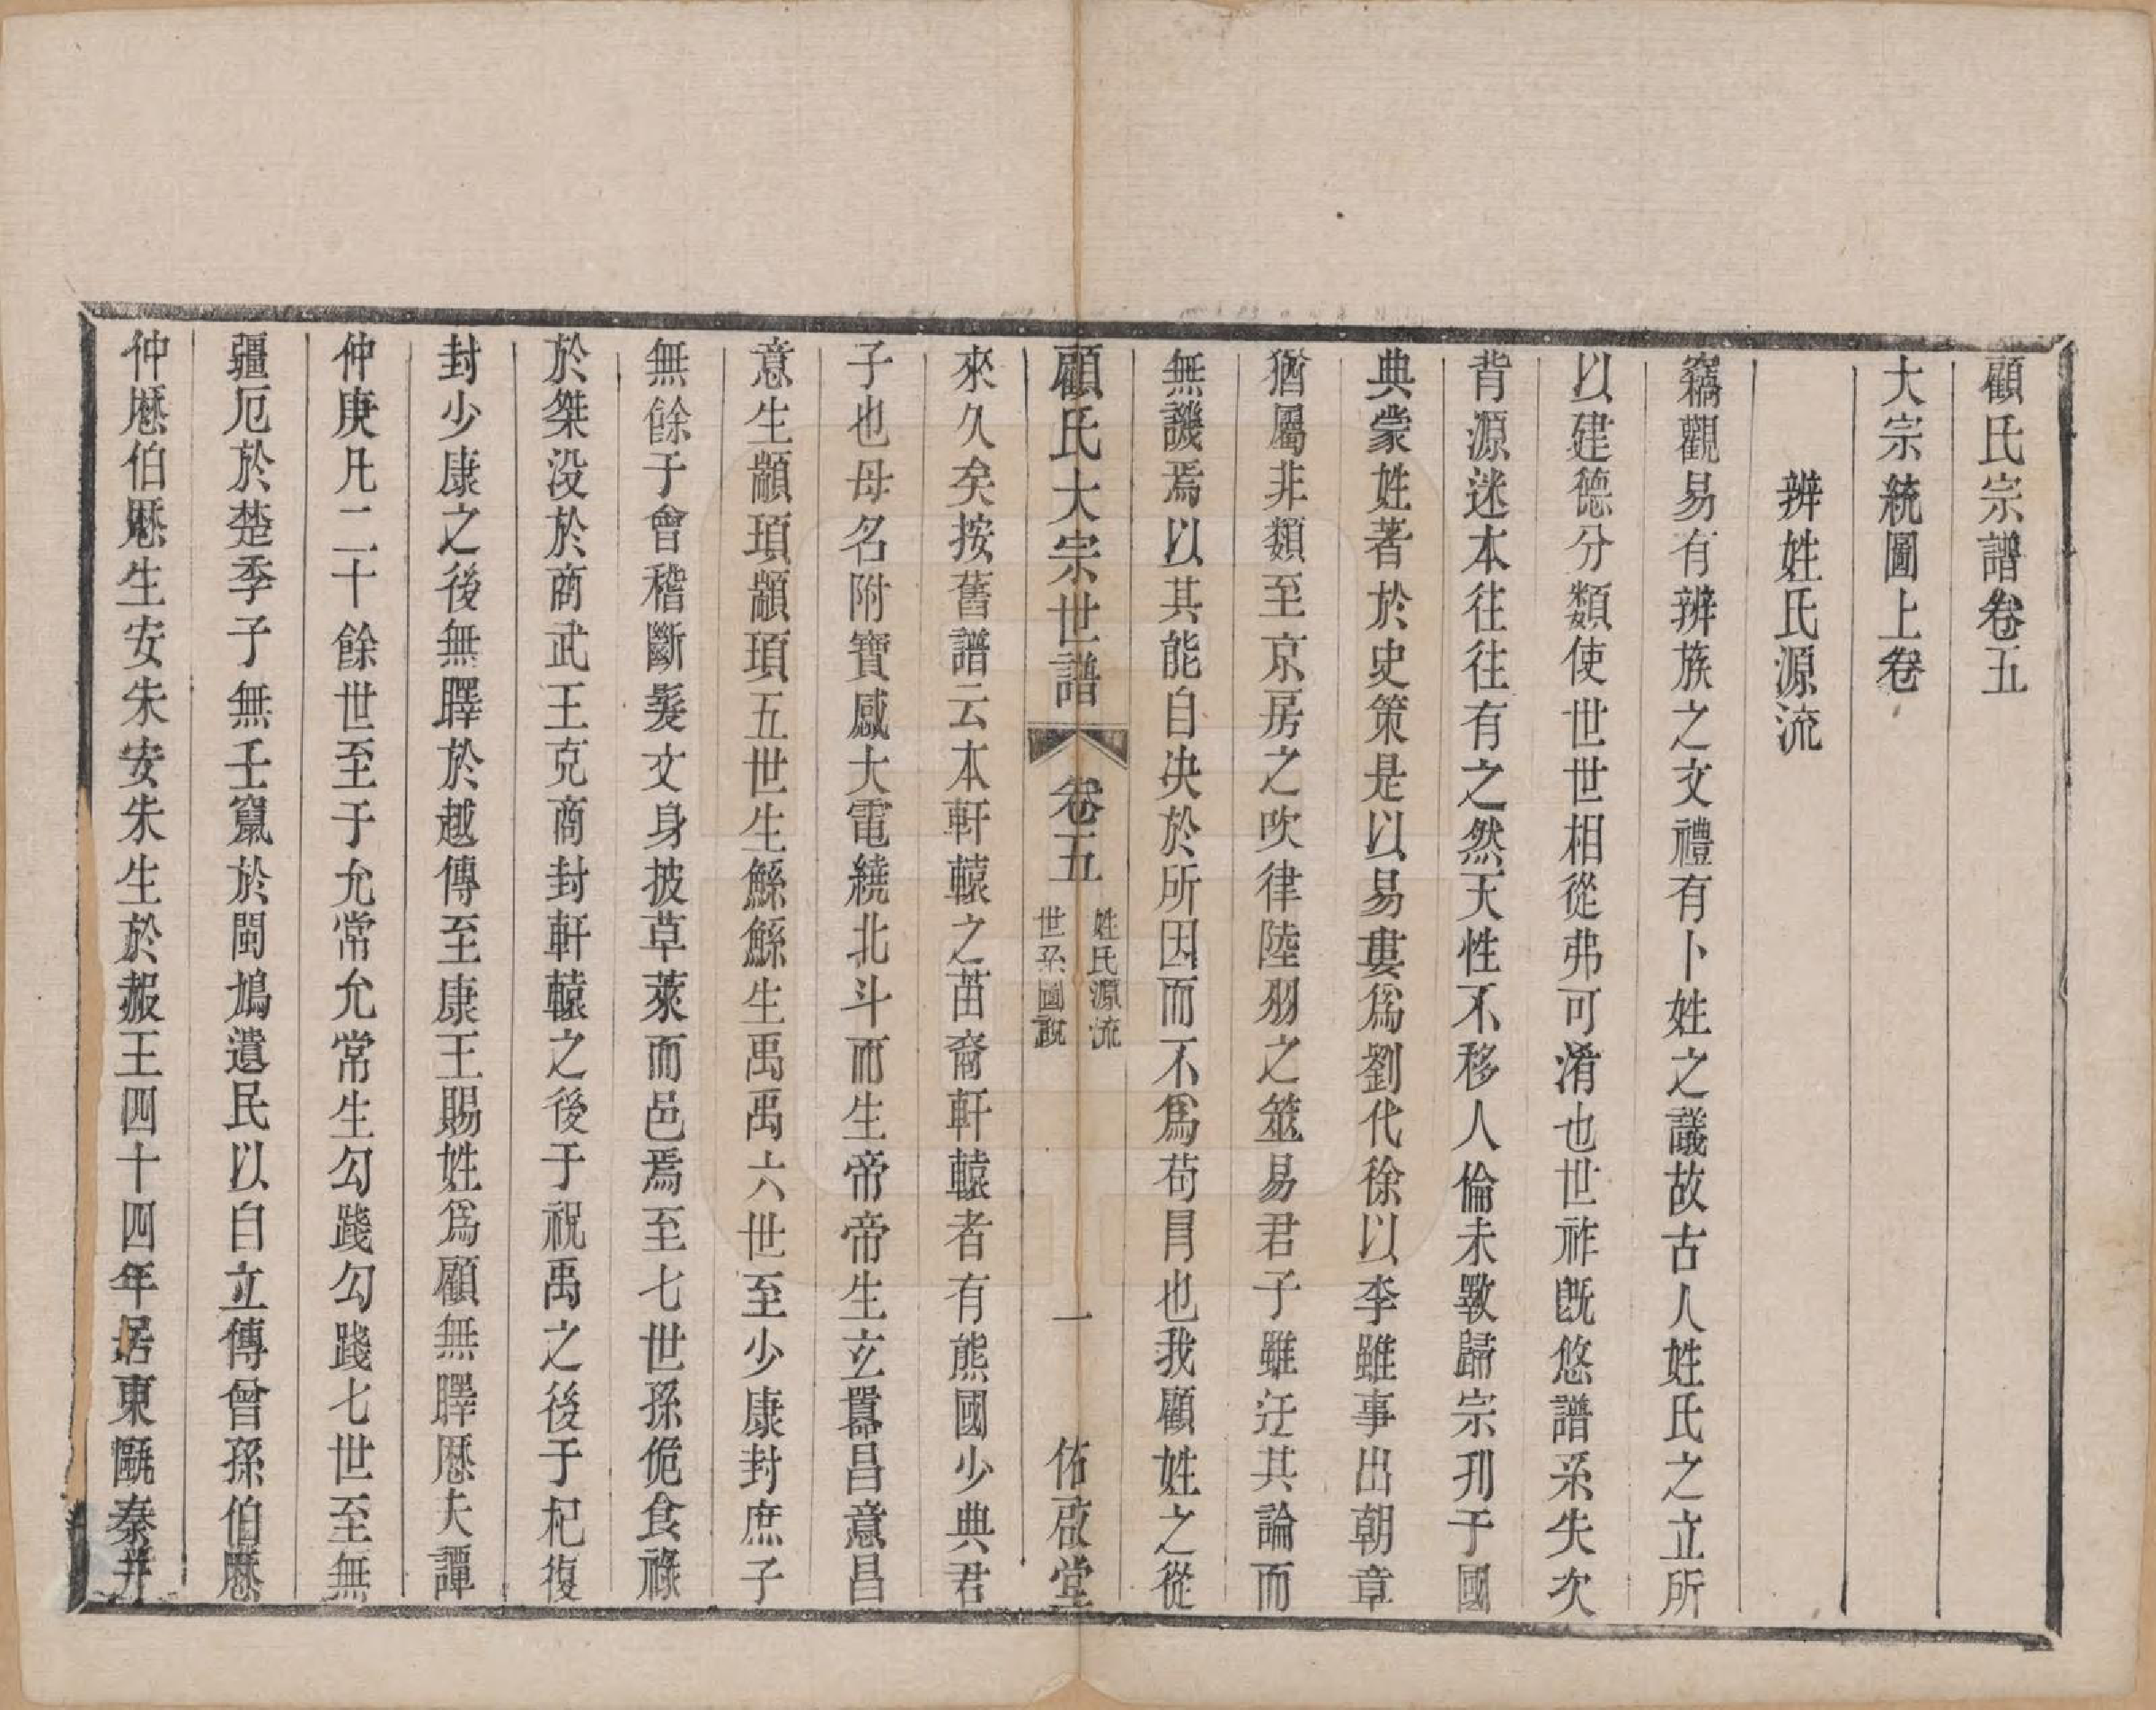 顧氏宗譜卷五
大宗統圖上卷
辨姓氏源流
竊觀易有辨族之文禮有卜姓之議故古人姓氏之立所
以建德分類使世世相從弗可淆也世祚旣悠譜系失次
背源迷本往往有之然天性不移人倫未斁歸宗刋于國
典蒙姓著於史策是以易婁爲劉代徐以李雖事出朝章
猶屬非類至京房之吹律陸羽之筮易君子雖迂其論而
無譏焉以其能自决於所因而不爲苟冐也我顧姓之從
顧氏大宗世譜
卷五
姓氏源流
世系圖說
一
佑啟堂
來久矣按舊譜云本軒轅之苗裔軒轅者有熊國少典君
子也母名附寶感大電繞北斗而生帝帝生玄囂昌意昌
意生顓頊顓頊五世生鯀鯀生禹禹六世至少康封庶子
無餘于會稽斷髮文身披草萊而邑焉至七世孫佹食祿
於桀没於商武王克商封軒轅之後于祝禹之後于杞復
封少康之後無驛於越傳至康王賜姓爲顧無驛厯夫譚
仲庚凡二十餘世至于允常允常生勾踐勾踐七世至無
疆厄於楚季子無壬竄於閩鳩遺民以自立傳曾孫伯厯
仲厯伯厯生安朱安朱生於赧王四十四年居東甌秦并